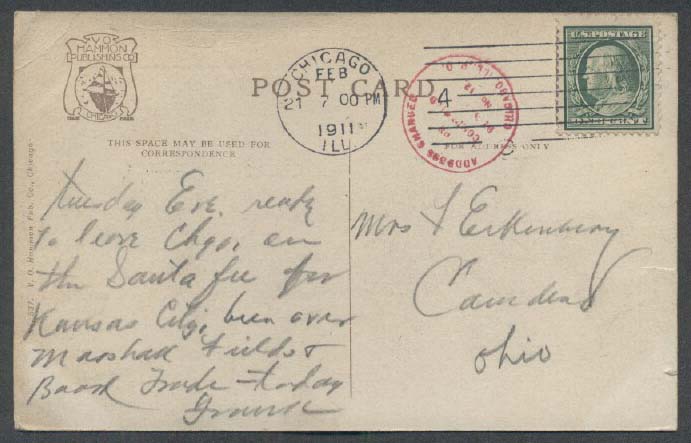 V.O.
HAMMON
PUBLISHING CO
CHICAGO
TRADE MARK
POST CARD
CHICAGO
FEB
21 7 00 PM
1911
ILL.
4
ADDRESS CHANGED
U.S. POSTAGE
THIS SPACE MAY BE USED FOR
CORRESPONDENCE
FOR ADDRESS ONLY
V. O. Hammon Pub. Co., Chicago
Tuesday Eve. ready
to leave Chgo, on
the Santa fee for
Kansas City, been over
Marshall Fields &
Board Trade - today
Mrs
Camden
Ohio